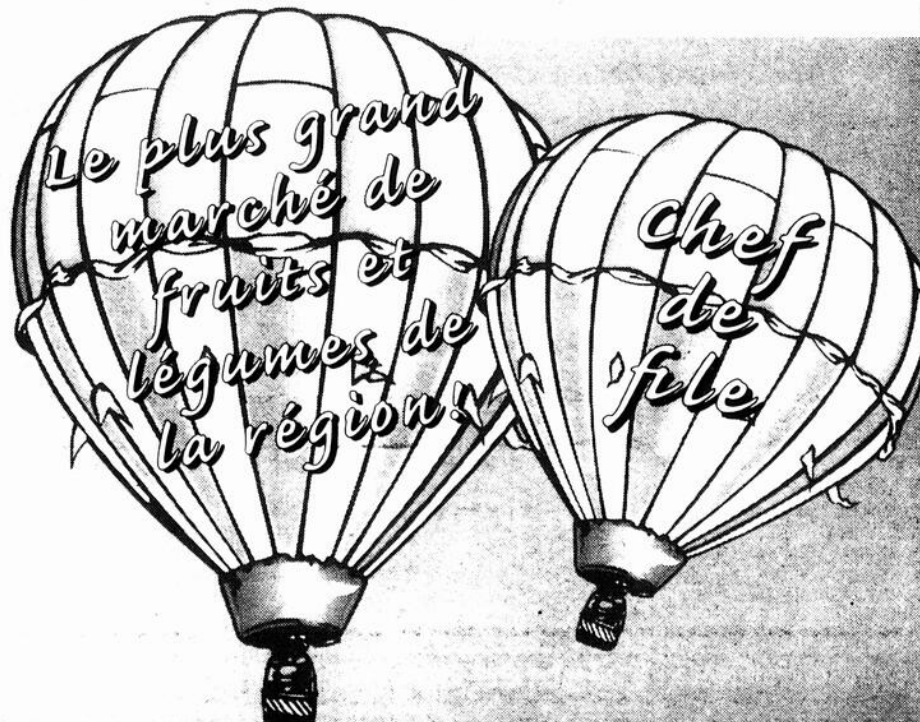 Le plus grand
marché de
fruits et
légumes de
la région!
Chef
de
file